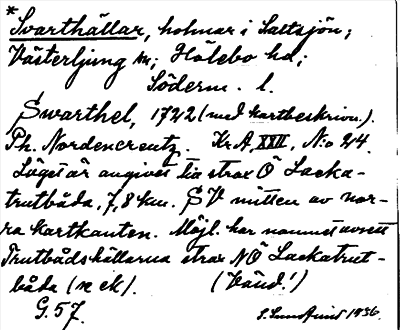 *Svarthällar, holmar i Saltsjön;
Västerljung sn; Hölebo hd;
Söderm. l.
Swarthel, 1722 (med kartbeskrivn.).
Ph. Nordencreutz. Kr.A, XXII, N:o 24.
Läget är angivet tra strax Ö Lacka-
trutbåda, 7,8 km. SV mitten av nor-
ra kartkanten. Möjl. har namnet avsett
Trutbådshällarna strax NÖ Lackatrut-
båda (n ek).
(Vänd!)
G. 57.
1936.